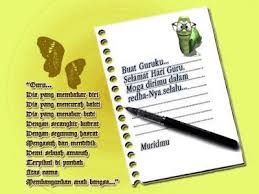 "Guru...
Dia yang membakar diri
Dia yang mencurah bakti
Dia yang menabur budi
Dengan secangkir hasrat
Dengan segunung hasrat
Mengasuh dan mendidik
Demi sebuah amanah
Terpikul di pundak
Atas nama
Pembangunkan anak bangsa..."
Buat Guruku...
Selamat Hari Guru.
Moga dirimu dalam
redha-Nya selalu...
Muridmu